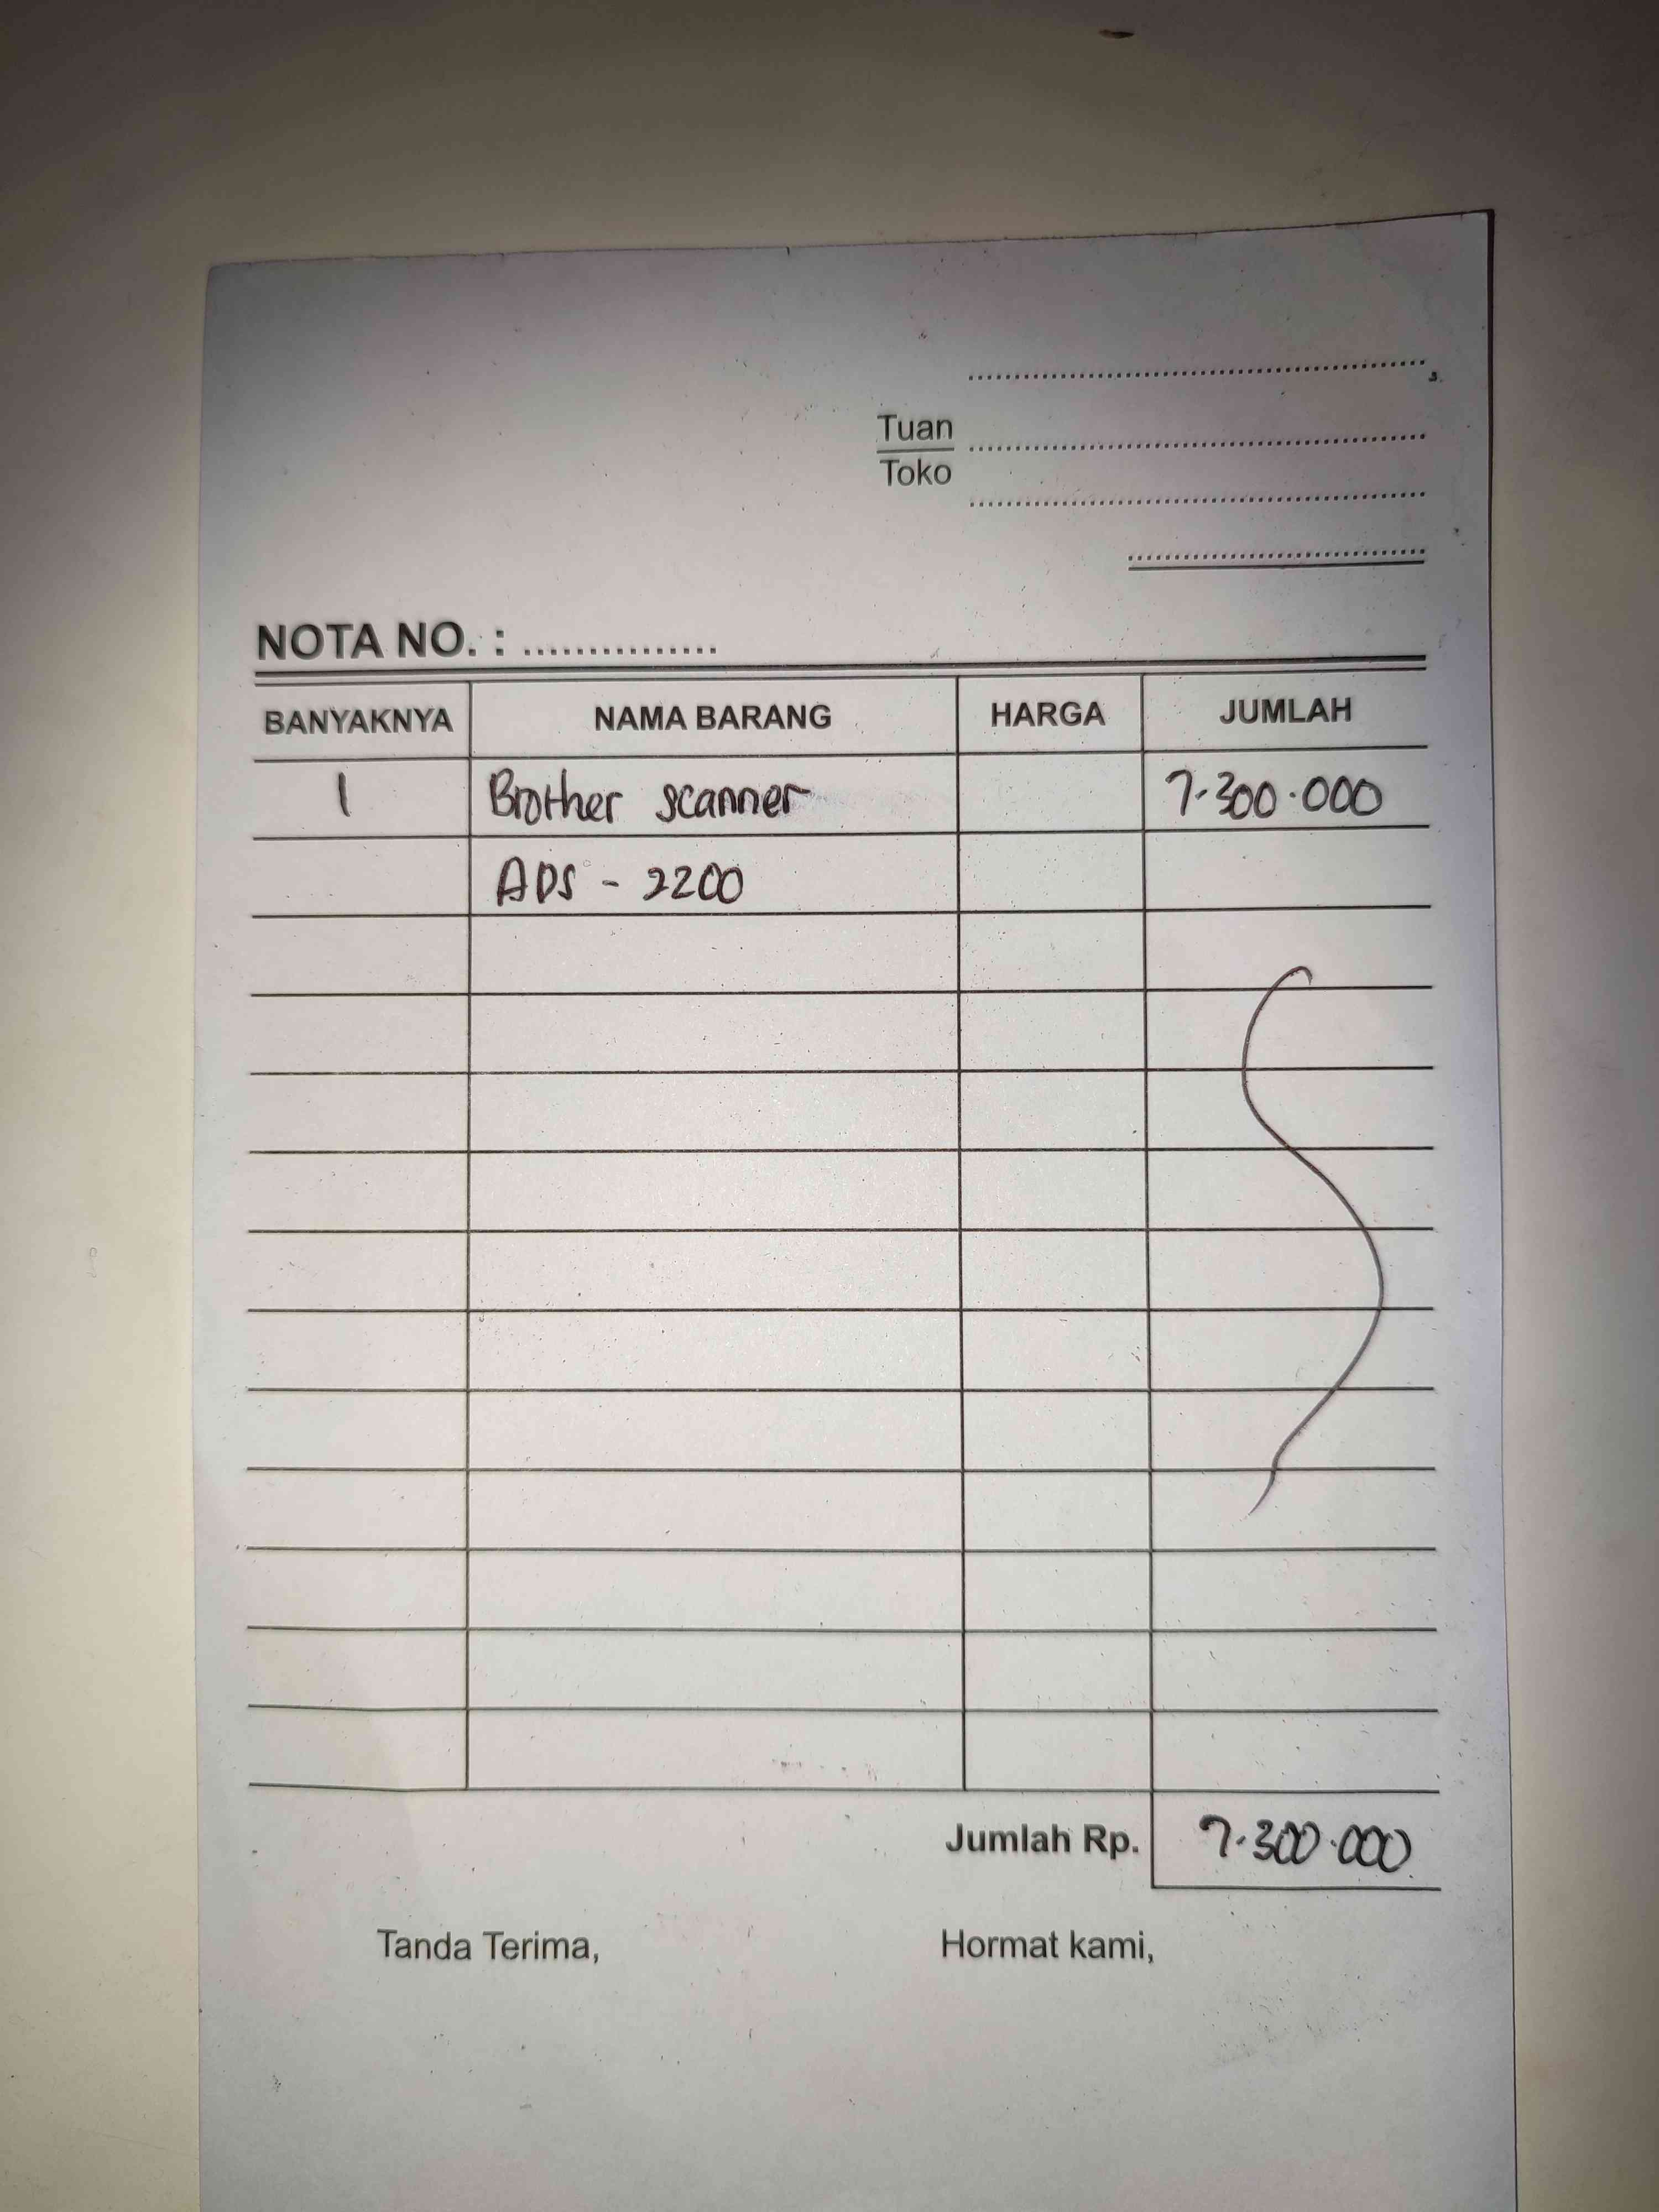 Tuan
Toko
NOTA NO. : ...............
BANYAKNYA NAMA BARANG HARGA JUMLAH
1 Brother scanner 7.300.000
ADS - 2200
Jumlah Rp. 7.300.000
Tanda Terima, Hormat kami,